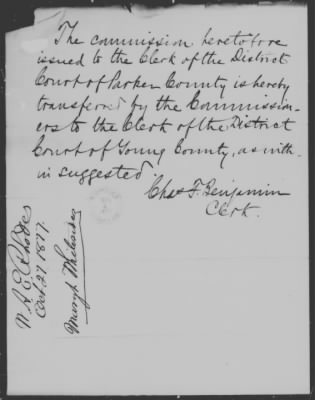 The commission heretofore
issued to the Clerk of the District
Court of Parker County is hereby
transfered by the Commission-
ers to the Clerk of the District
Court of Young County, as with-
in suggested.
Chas F. Benjamin
Clerk.
Rhodes
Oct 27 1877.